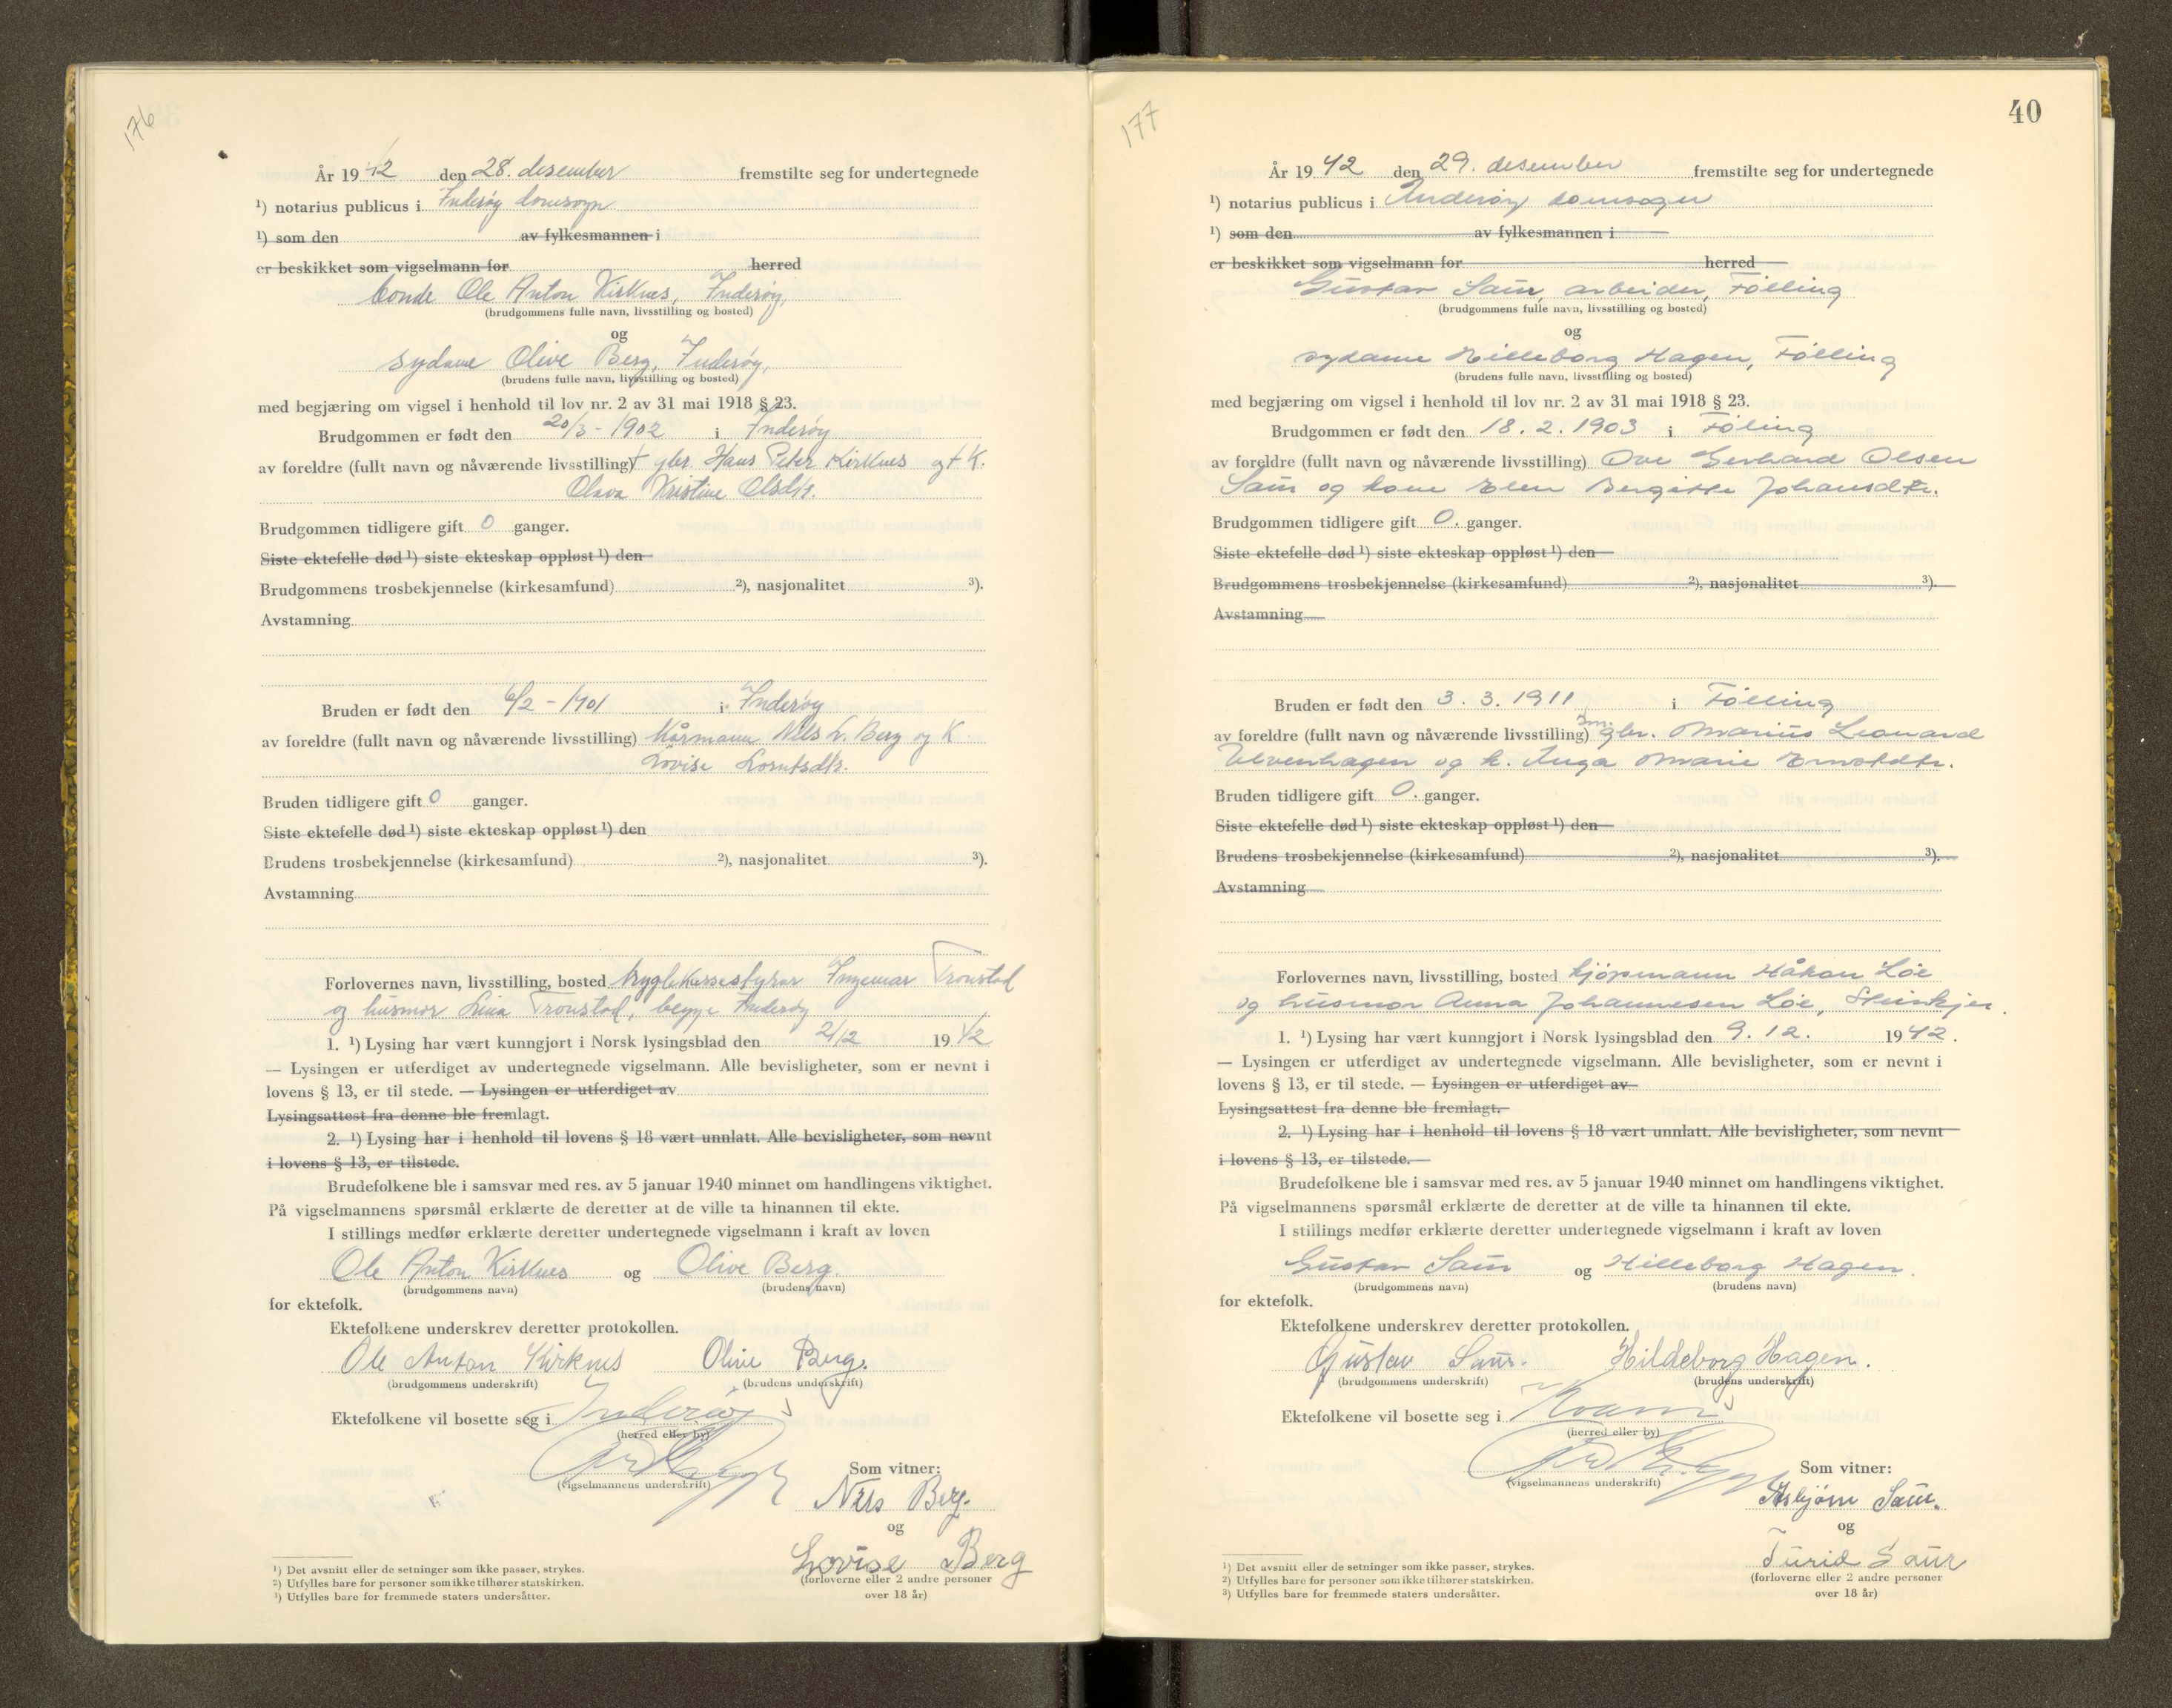 176
År 19 42 den 28. desember fremstilte seg for undertegnede
¹) notarius publicus i Inderøy domsogn
¹) som den av fylkesmannen i
er beskikket som vigselmann for herred
bonde Ole Anton Kirknes, Inderøy,
(brudgommens fulle navn, livsstilling og bosted)
og
sydame Olive Berg, Inderøy,
(brudens fulle navn, livsstilling og bosted)
med begjæring om vigsel i henhold til lov nr. 2 av 31 mai 1918 § 23.
Brudgommen er født den 20/3 - 1902 i Inderøy
av foreldre (fullt navn og nåværende livsstilling) † gbr. Hans Peter Kirknes og † K.
Olava Kristine Olsdtr.
Brudgommen tidligere gift 0 ganger.
Siste ektefelle død ¹) siste ekteskap oppløst ¹) den
Brudgommens trosbekjennelse (kirkesamfund) ²), nasjonalitet ³).
Avstamning
Bruden er født den 6/2 - 1901 i Inderøy
av foreldre (fullt navn og nåværende livsstilling) Kårmann Nils L. Berg og K
Lovise Lorntsdtr.
Bruden tidligere gift 0 ganger.
Siste ektefelle død ¹) siste ekteskap oppløst ¹) den
Brudens trosbekjennelse (kirkesamfund) ²), nasjonalitet ³).
Avstamning
Forlovernes navn, livsstilling, bosted trygdekassestyrer Ingemar Tronstad
og husmor Lina Tronstad, begge Inderøy
1. ¹) Lysing har vært kunngjort i Norsk lysingsblad den 2/12 19 42
— Lysingen er utferdiget av undertegnede vigselmann. Alle bevisligheter, som er nevnt i
lovens § 13, er til stede. — Lysingen er utferdiget av
Lysingsattest fra denne ble fremlagt.
2. ¹) Lysing har i henhold til lovens § 18 vært unnlatt. Alle bevisligheter, som nevnt
i lovens § 13, er tilstede.
Brudefolkene ble i samsvar med res. av 5 januar 1940 minnet om handlingens viktighet.
På vigselmannens spørsmål erklærte de deretter at de ville ta hinannen til ekte.
I stillings medfør erklærte deretter undertegnede vigselmann i kraft av loven
Ole Anton Kirknes og Olive Berg.
(brudgommens navn) (brudens navn)
for ektefolk.
Ektefolkene underskrev deretter protokollen.
Ole Anton Kirknes Olive Berg.
(brudgommens underskrift) (brudens underskrift)
Ektefolkene vil bosette seg i Inderøy
(herred eller by)
(vigselmannens underskrift)
Som vitner:
Nils Berg.
og
Lovise Berg
(forloverne eller 2 andre personer
over 18 år)
¹) Det avsnitt eller de setninger som ikke passer, strykes.
²) Utfylles bare for personer som ikke tilhører statskirken.
³) Utfylles bare for fremmede staters undersåtter.
177
40
År 19 42 den 29. desember fremstilte seg for undertegnede
¹) notarius publicus i Inderøy domsogn
¹) som den av fylkesmannen i
er beskikket som vigselmann for herred
Gustav Saur, arbeider, Følling
(brudgommens fulle navn, livsstilling og bosted)
og
sydame Hilleborg Hagen, Følling
(brudens fulle navn, livsstilling og bosted)
med begjæring om vigsel i henhold til lov nr. 2 av 31 mai 1918 § 23.
Brudgommen er født den 18. 2. 1903 i Føling
av foreldre (fullt navn og nåværende livsstilling) Ove Gerhard Olsen
Saur og kone Elen Bergitte Johansdtr.
Brudgommen tidligere gift 0. ganger.
Siste ektefelle død ¹) siste ekteskap oppløst ¹) den
Brudgommens trosbekjennelse (kirkesamfund) ²), nasjonalitet ³).
Avstamning
Bruden er født den 3. 3. 1911 i Følling
av foreldre (fullt navn og nåværende livsstilling) gbr. Marius Leonard
Ulvenhagen og k. Inga Marie Ernstdtr.
Bruden tidligere gift 0. ganger.
Siste ektefelle død ¹) siste ekteskap oppløst ¹) den
Brudens trosbekjennelse (kirkesamfund) ²), nasjonalitet ³).
Avstamning
Forlovernes navn, livsstilling, bosted kjøpmann Håkon Løe
og husmor Anna Johannesen Løe, Steinkjer.
1. ¹) Lysing har vært kunngjort i Norsk lysingsblad den 9. 12. 19 42.
— Lysingen er utferdiget av undertegnede vigselmann. Alle bevisligheter, som er nevnt i
lovens § 13, er til stede. — Lysingen er utferdiget av
Lysingsattest fra denne ble fremlagt.
2. ¹) Lysing har i henhold til lovens § 18 vært unnlatt. Alle bevisligheter, som nevnt
i lovens § 13, er tilstede.
Brudefolkene ble i samsvar med res. av 5 januar 1940 minnet om handlingens viktighet.
På vigselmannens spørsmål erklærte de deretter at de ville ta hinannen til ekte.
I stillings medfør erklærte deretter undertegnede vigselmann i kraft av loven
Gustav Saur og Hilleborg Hagen.
(brudgommens navn) (brudens navn)
for ektefolk.
Ektefolkene underskrev deretter protokollen.
Gustav Saur. Hildeborg Hagen.
(brudgommens underskrift) (brudens underskrift)
Ektefolkene vil bosette seg i Kvam
(herred eller by)
(vigselmannens underskrift)
Som vitner:
Asbjørn Saur.
og
Turid Saur
(forloverne eller 2 andre personer
over 18 år)
¹) Det avsnitt eller de setninger som ikke passer, strykes.
²) Utfylles bare for personer som ikke tilhører statskirken.
³) Utfylles bare for fremmede staters undersåtter.